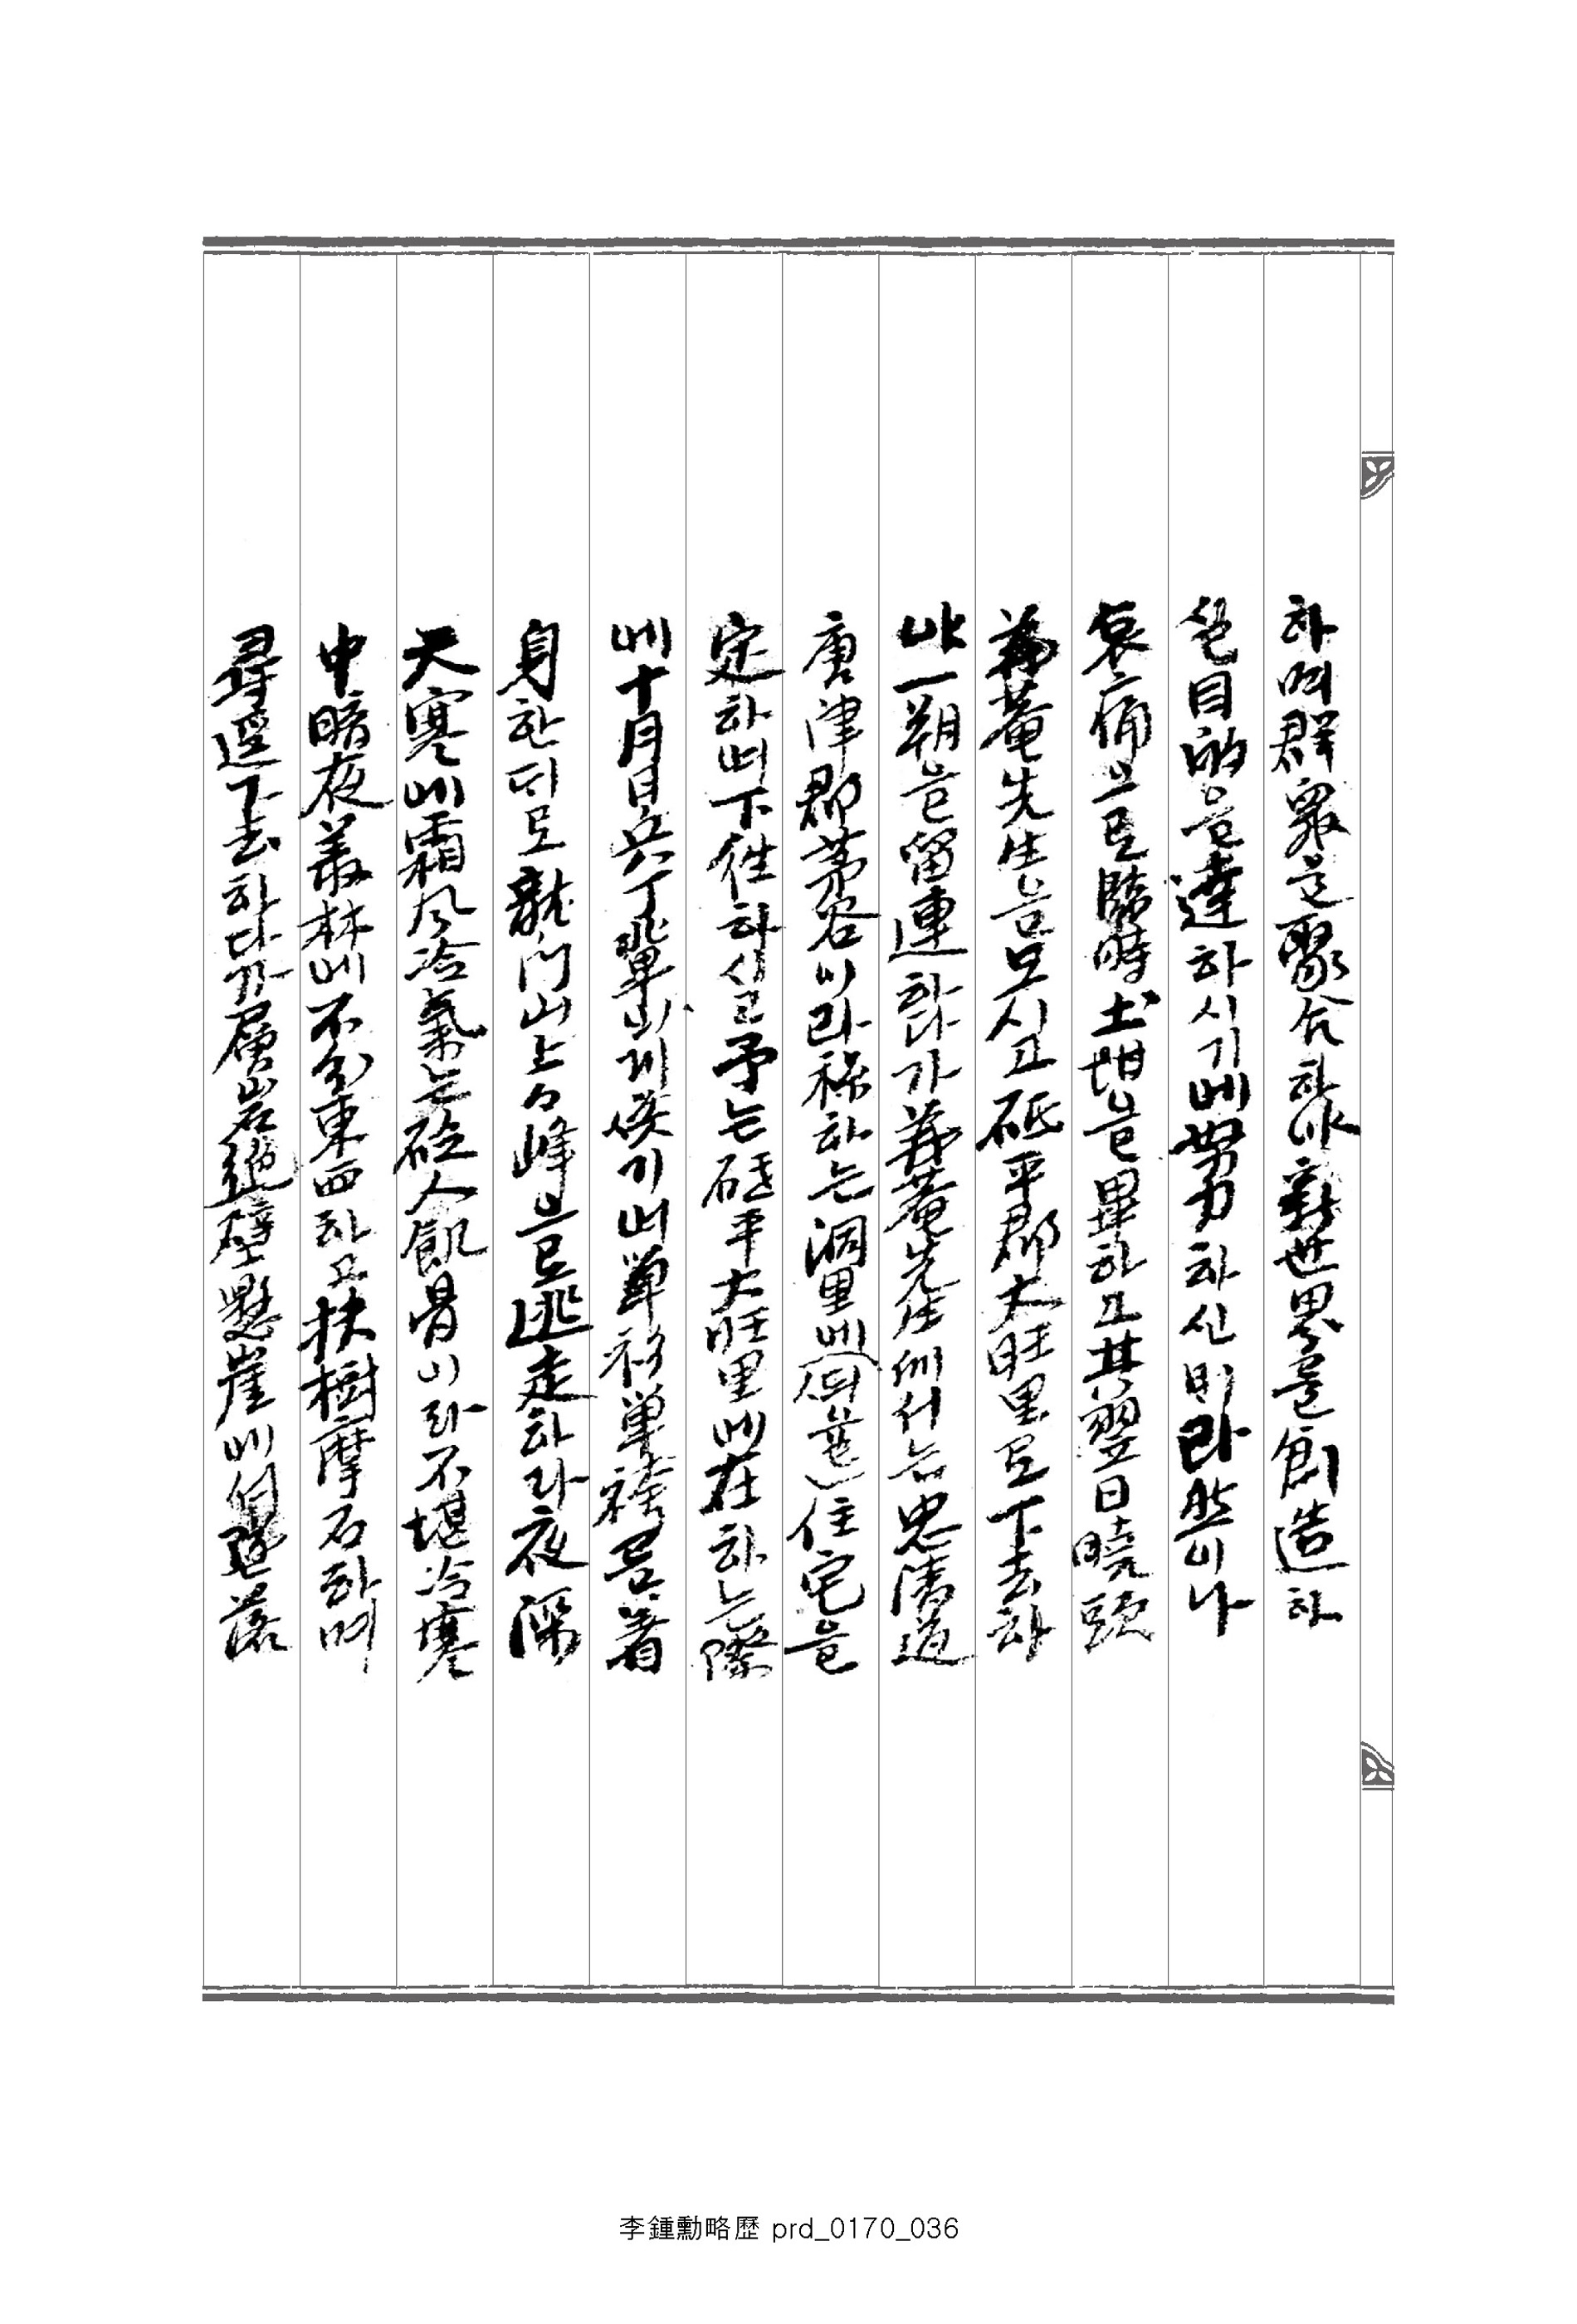 하며群衆을聚合하야新世界을創造하
실目的을達하시기에努力하신비라然이나
哀痛으로臨時土堪을畢하고其翌日曉頭
義菴先生을모시고砥平郡大旺里로下去하
야一朔을留連하다가義菴先生에서는忠淸道
唐津郡茅谷이라稱하는洞里에住宅을
定하며下往하시고予는砥平大旺里에在하는際
에十月日兵丁輩
身한디로龍門山上上峰으로逃走하라夜深
天寒에霜風冷氣는砭人飢骨이라不堪冷寒
中暗夜叢林에不分東西하고扶樹摩石하며
尋逕下去하다가層岩絶壁懸崖에墜落
李鍾勳略歷 prd_0170_036